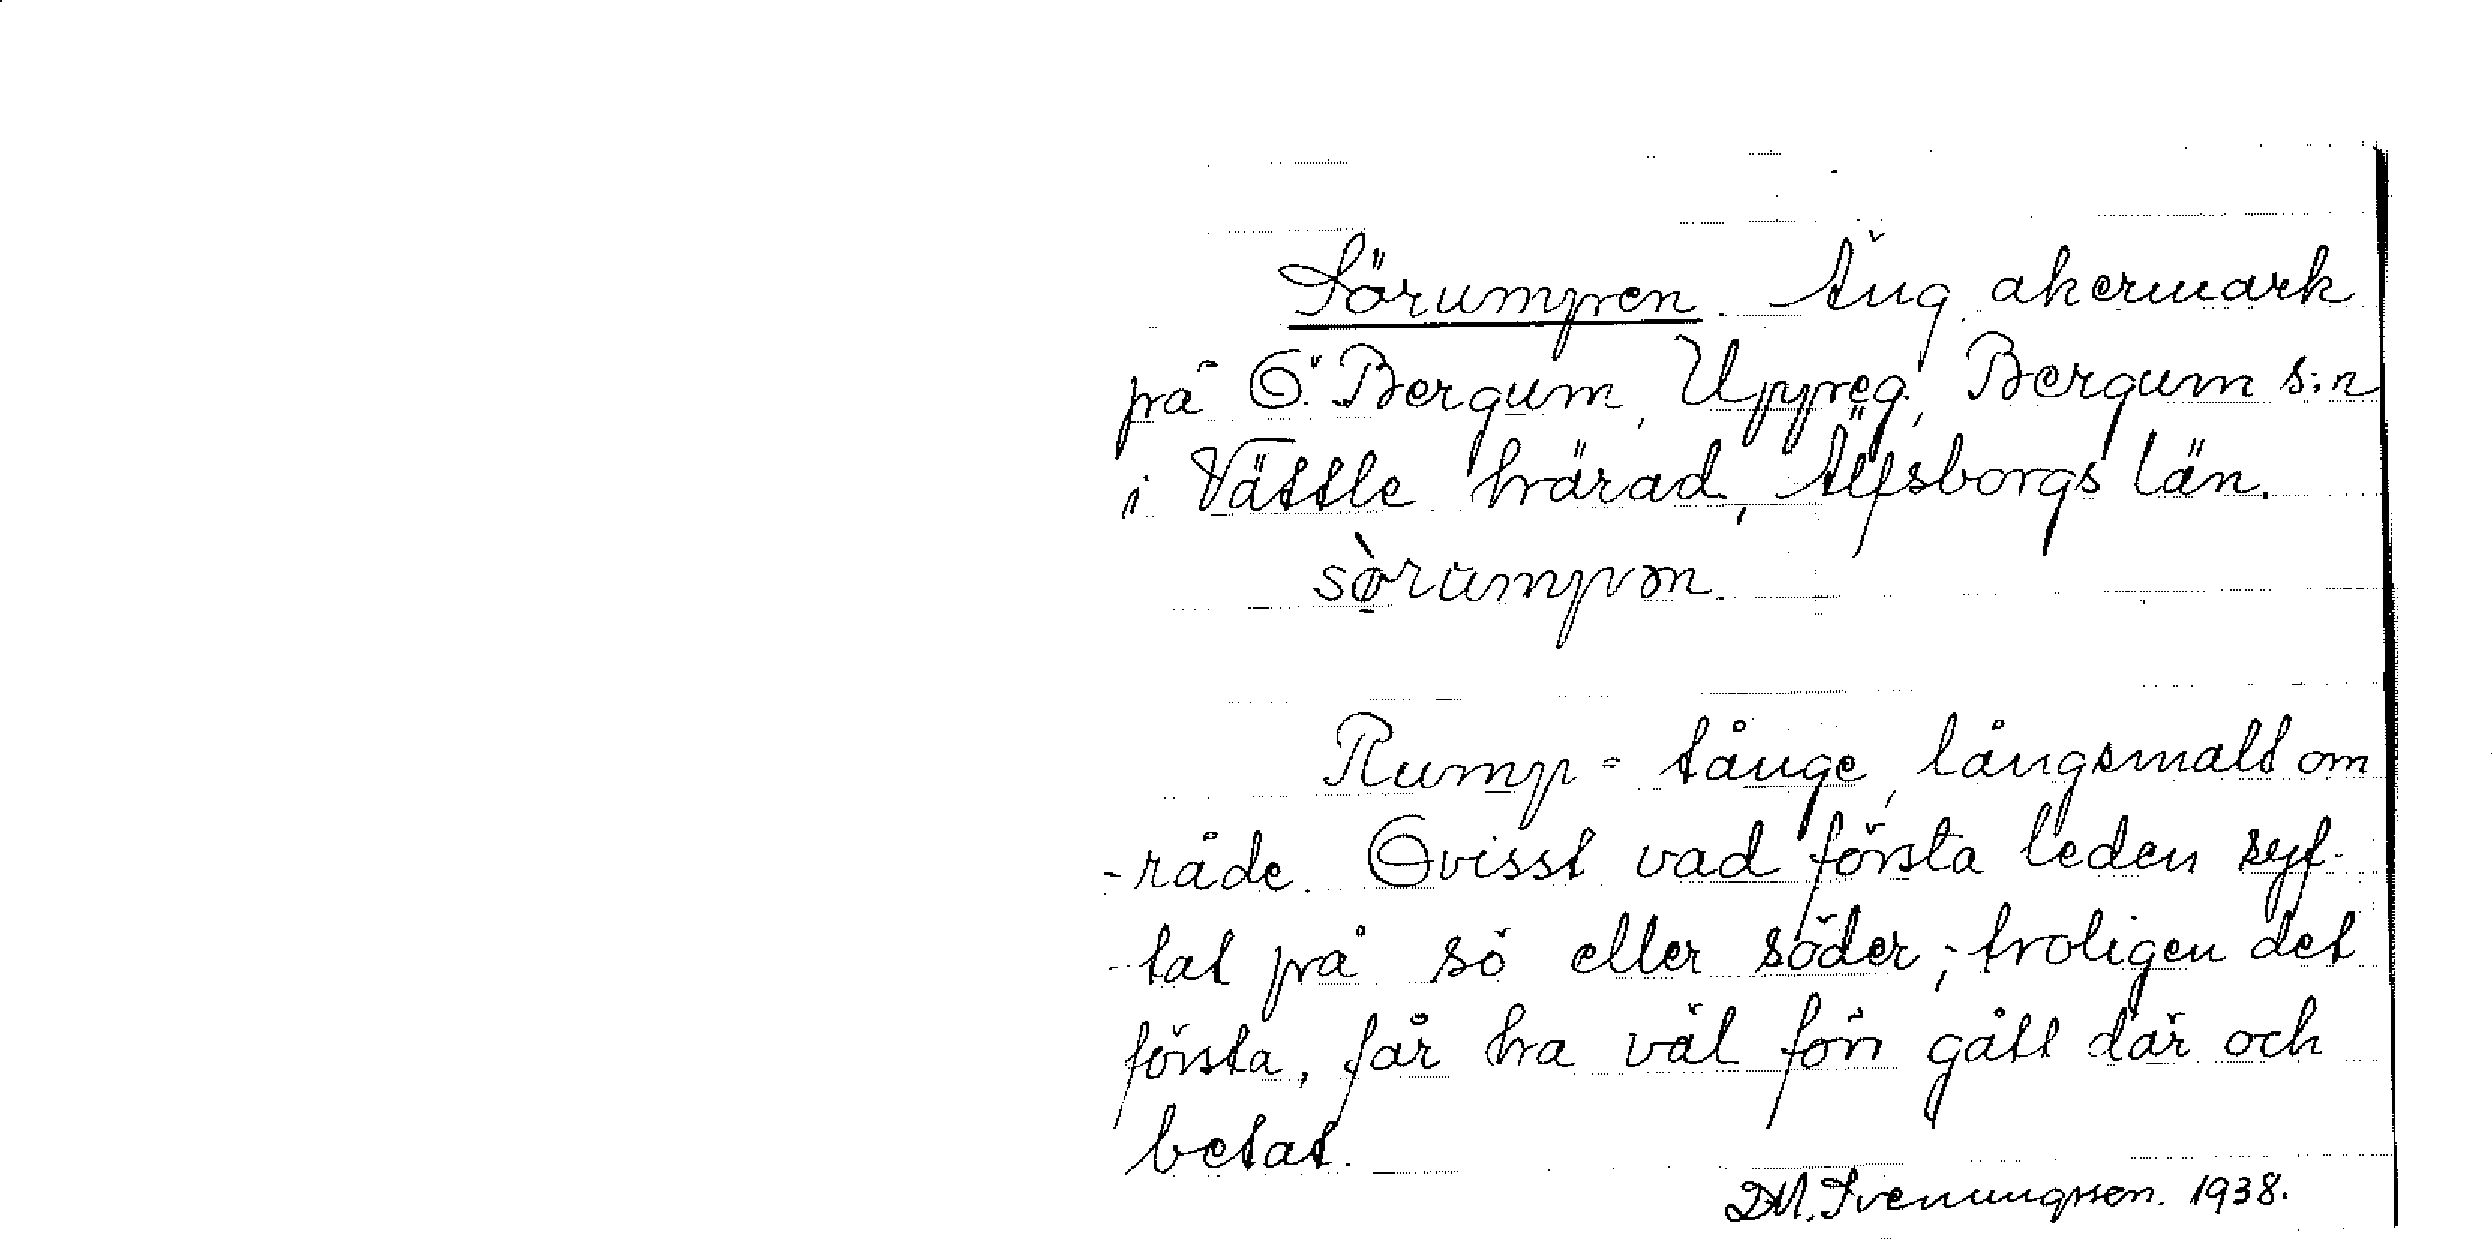 Sörumpen. Äng, åkermark
på Ö. Bergum, Uppreg, Bergum s:n
i Vättle härad, Älfsborgs län.
sø̀rumpən.
Rump = tånge, långsmalt om
-råde. Ovisst vad första leden syf-
-tat på sö eller söder; troligen det
första, får ha väl förr gått där och
betat.
D.M. Svenungsson. 1938.